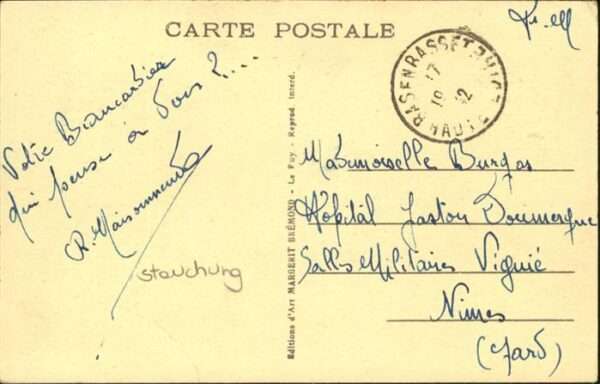 F.M
CARTE POSTALE
Votre Brancardier
qui pense à Vous ?....
R. Maisonneuve
stauchung
Editions d'Art MARGERIT BRÉMOND - Le Puy - Reprod. interd.
17
19 12
Mademoiselle Burgas
Hôpital Gaston Doumergue
Salles Militaires Viguié
Nimes
(Gard)